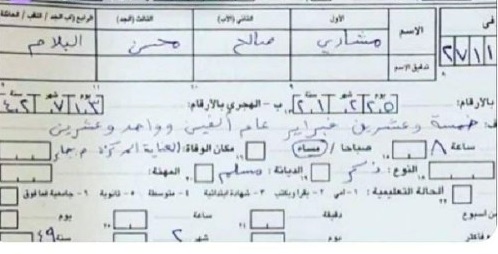 في الاسم الأول الثاني (الأب) الثالث (الجد) الرابع (أب الجد / اللقب / العائلة
٢٧١١ مشاري صالح محسن البلام
تدقيق الاسم
بالأرقام: يوم ٢٥ شهر ٢ سنة ٢٠٢١ ب - الهجري بالأرقام: يوم ١٣ شهر ٧ سنة
خمسة وعشرين فبراير عام ألفين وواحد وعشرين
ساعة ٨ صباحا / مساء مكان الوفاة: العناية المركزة
النوع: ذكر الديانة: مسلم المهنة:
الحالة التعليمية: ١- أمي ٢- يقرأ ويكتب ٣- شهادة ابتدائية ٤- متوسطة ٥- ثانوية ٦- جامعية فما فوق
من أسبوع دقيقة ساعة يوم
فأكثر يوم شهر ٢ سنة ٤٩